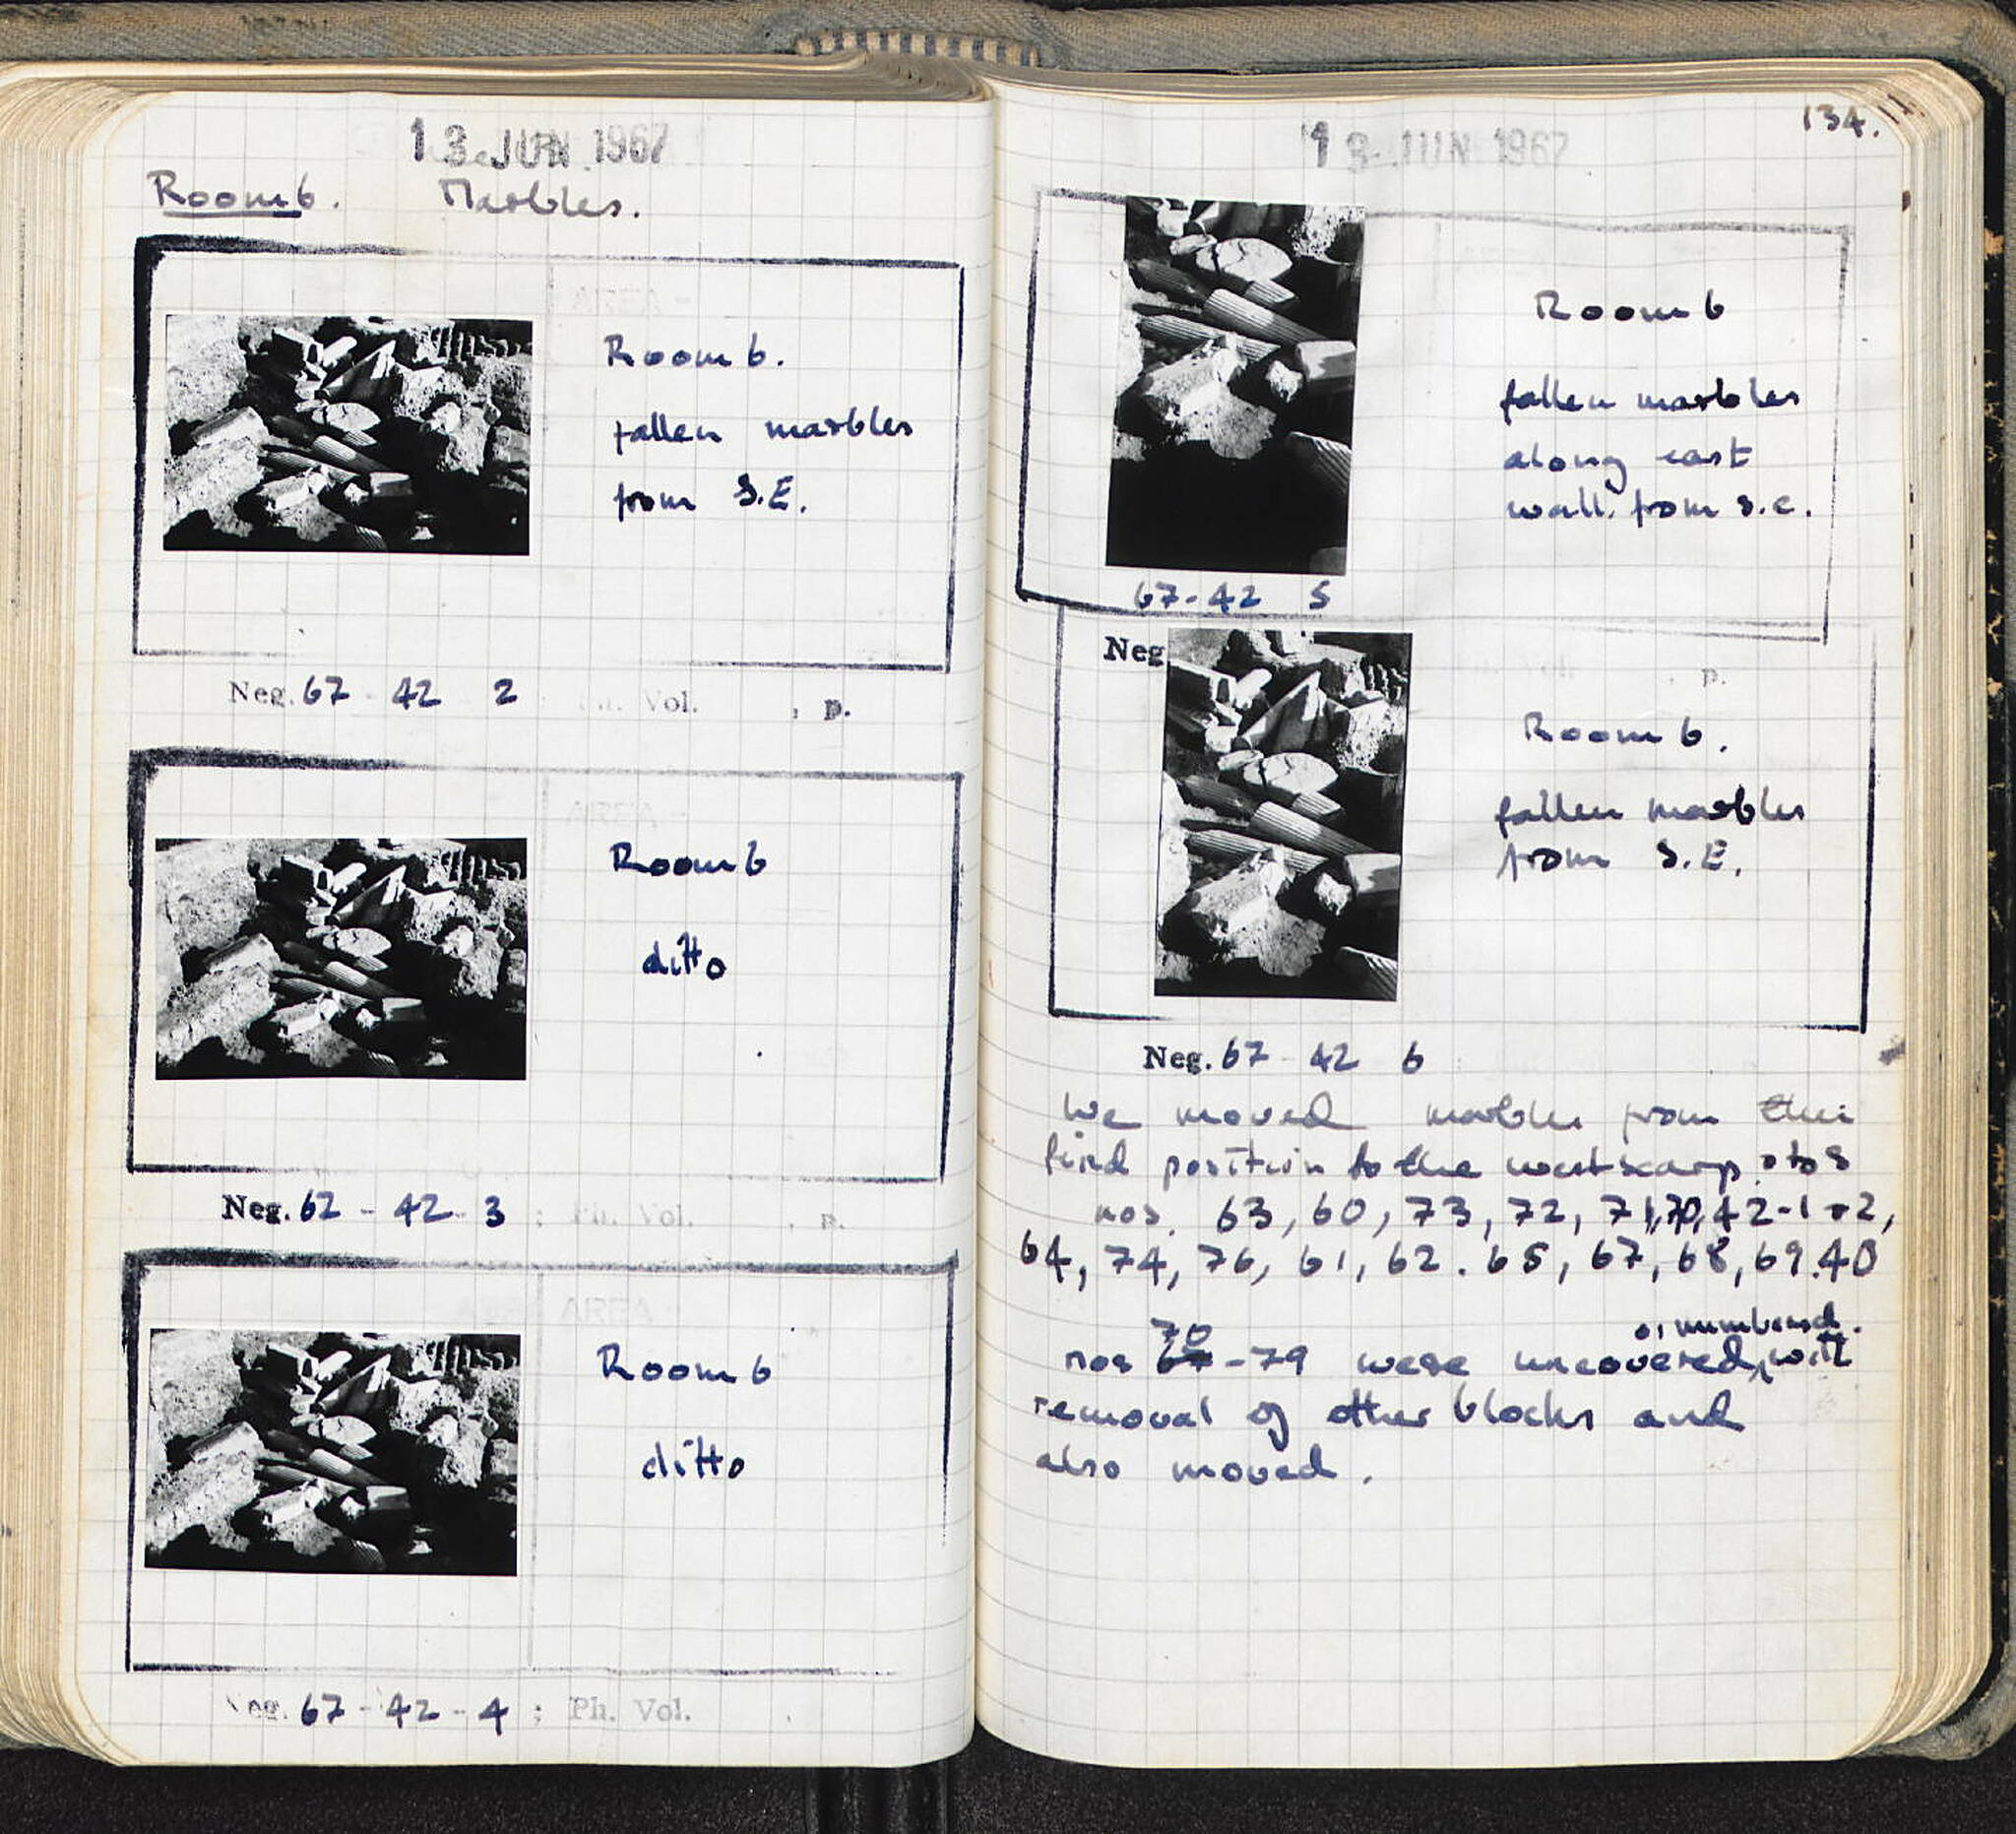 13 JUN 1967
Room 6. Marbles.
AREA -
Room 6.
fallen marbles
from S.E.
Neg. 67 - 42 2 : Ph. Vol. , p.
AREA -
Room 6
ditto
Neg. 67 - 42 - 3 ; Ph. Vol. , p.
AREA -
Room 6
ditto
Neg. 67 - 42 - 4 ; Ph. Vol.
134.
13 JUN 1967
AREA -
Room 6
fallen marbles
along east
wall. from s.e.
67-42 5
Neg Vol. , p.
Room 6.
fallen marbles
from S.E.
Neg. 67 - 42 6
We moved marbles from their
find position to the west scarp.
nos. 63, 60, 73, 72, 71, 70, 42-1+2,
64, 74, 76, 61, 62. 65, 67, 68, 69. 40
70
or numbered.
nos 67-79 were uncovered, with
removal of other blocks and
also moved.